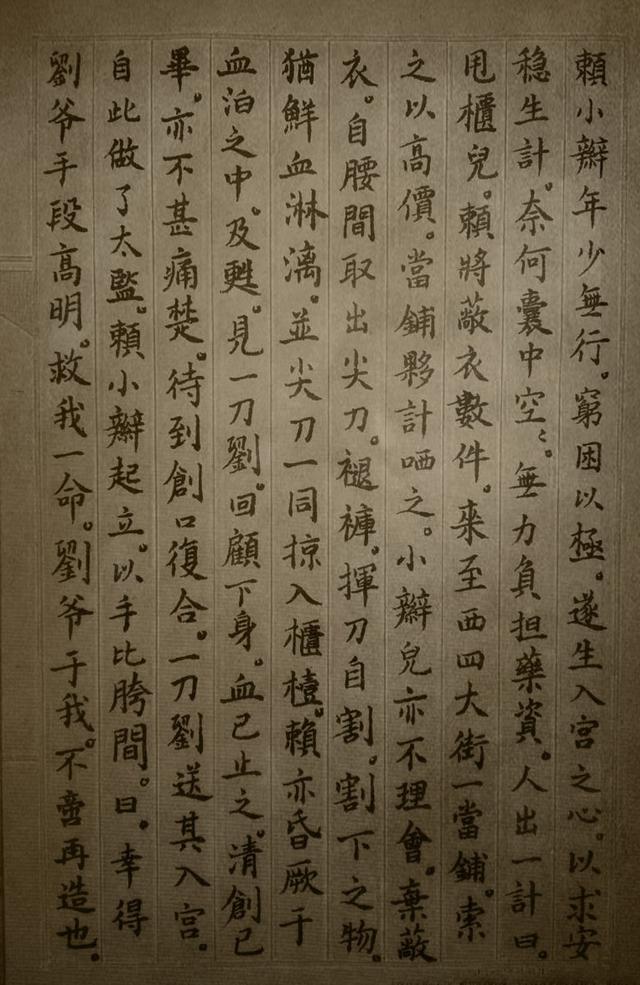 賴小辮年少無行。窮困以極。遂生入宮之心。以求安
稳生計。奈何囊中空〻。無力負担藥資。人出一計曰。
甩櫃兒。賴將蔽衣數件。来至西四大街一當鋪。索
之以高價。當鋪夥計哂之。小辮兒亦不理會。棄蔽
衣。自腰間取出尖刀。褪褲。揮刀自割。割下之物。
猶鮮血淋漓。並尖刀一同掠入櫃檯。賴亦昏厥于
血泊之中。及甦。見一刀劉。回顧下身。血已止之。清創已
畢。亦不甚痛楚。待到創口復合。一刀劉送其入宮。
自此做了太監。賴小辮起立。以手比胯間。曰。幸得
劉爷手段高明。救我一命。劉爷于我。不啻再造也。